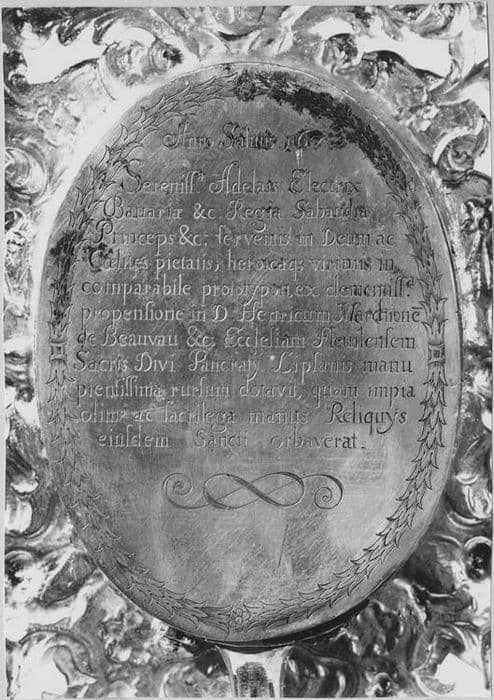 Anno Salutis 167
Serenissᵃ. Adelais Electrix
Bavariæ &c. Regia Sabaudiæ
Princeps &c: ferventis in Deum ac
Cœlites pietatis, heroicæq; virtutis in
comparabile prototypon, ex clementissᵃ.
propensione in D. Henricum Marchionē
de Beauvau &c. Ecclesiam Flemlensem
Sacris Divi Pancratij Lipsanis manu
pientissima rursum dotavit, quam impia
olim ac sacrilega manus Reliquijs
eiusdem Sancti orbaverat.